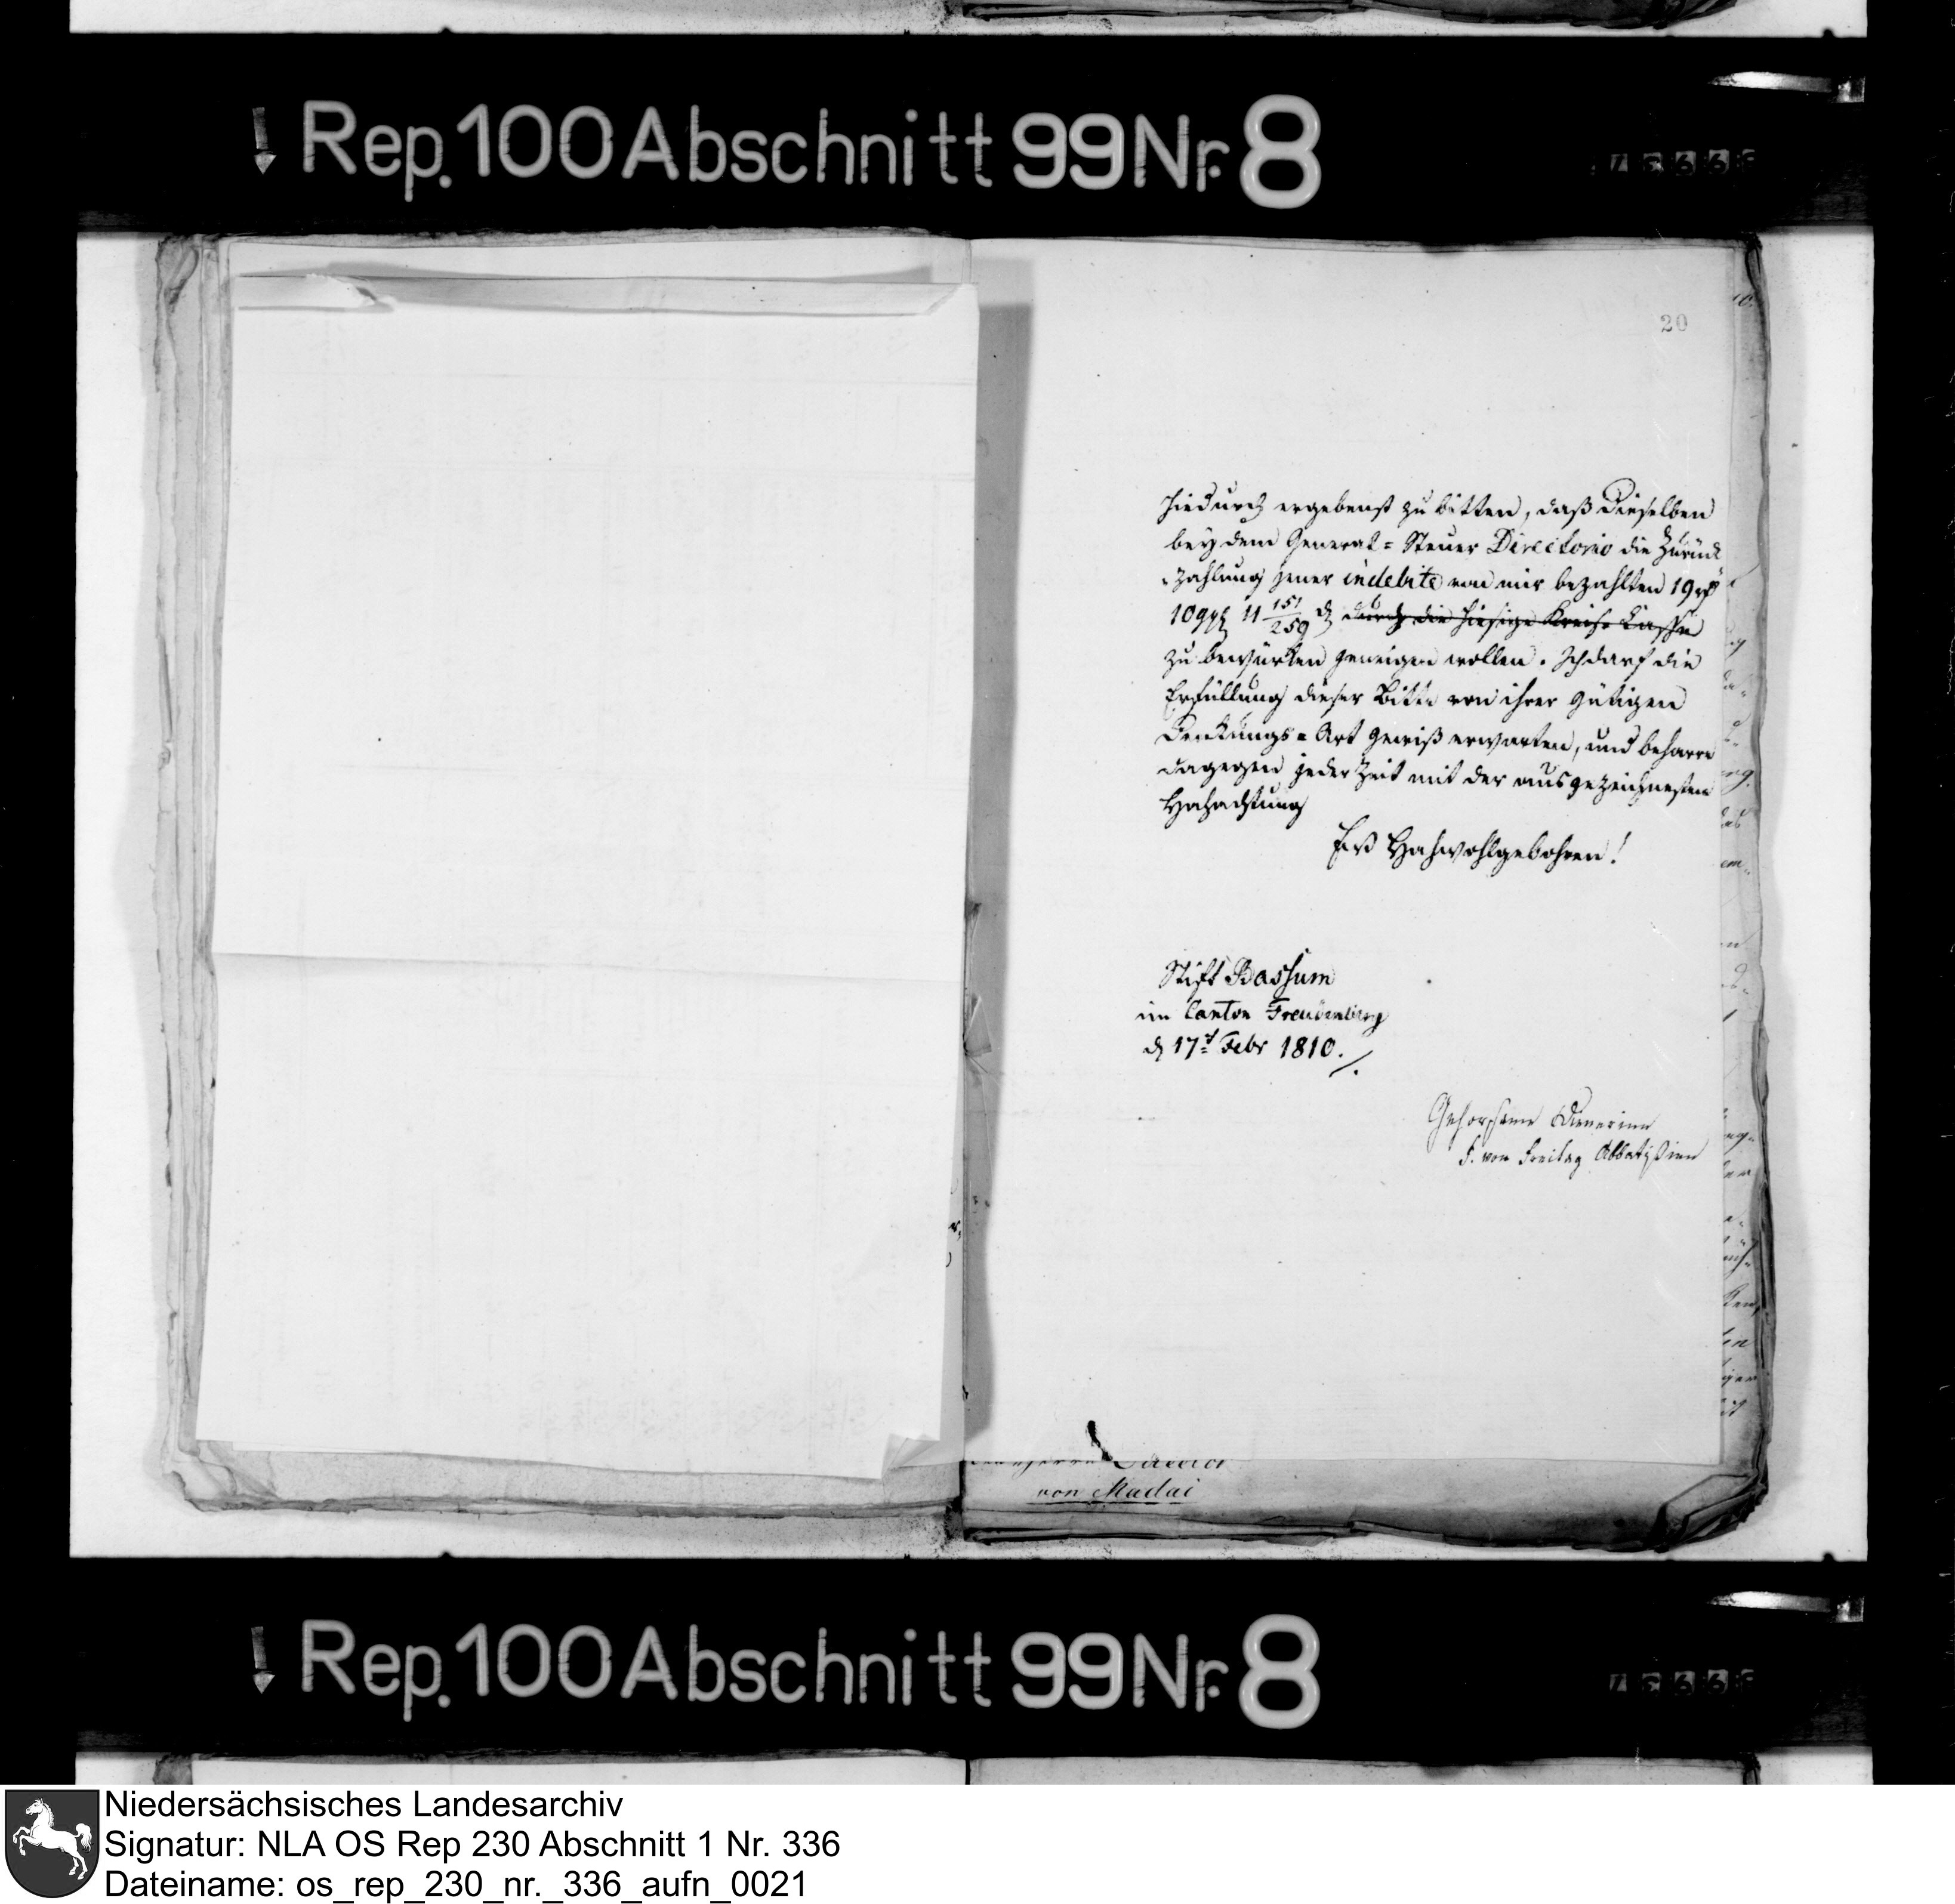 Rep. 100 Abschnitt 99 Nr. 8
20
hiedurch ergebenst zu bitten, daß Dieselben
bey dem General=Steuer Directorio die Zurück
=zahlung jener indebite von mir bezahlten 19 rℓ
10 ggℓ 11 151/259 ₰ durch die hiesige Kreise Casse
zu bewürken geneigen wollen. Ich darf die
Erfüllung dieser Bitte von ihrer gütigen
Denkungs=Art gewiß erwarten, und beharre
dagegen jeder Zeit mit der ausgezeichnesten
Hochachtung
Ew Hochwohlgebohren!
Stift Bassum
im Canton Freudenberg
d 17t Febr 1810./.
Gehorsame Dienerinn
F. von Freitag Abbatißinn
von Madai
Rep. 100 Abschnitt 99 Nr. 8
Niedersächsisches Landesarchiv
Signatur: NLA OS Rep 230 Abschnitt 1 Nr. 336
Dateiname: os_rep_230_nr._336_aufn_0021